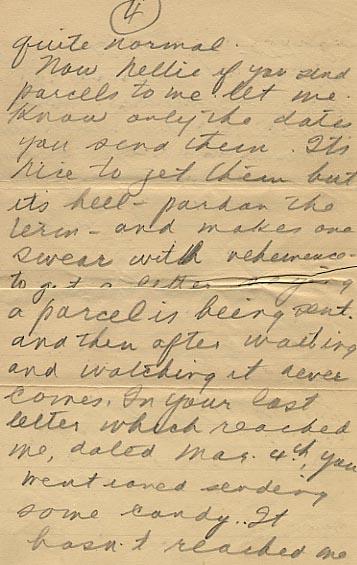 4
quite normal.
Now Nellie if you send
parcels to me let me
know only the dates
you send them. Its
nice to get them but
its hell - pardon the
term - and makes one
swear with vehemence -
to get a letter saying
a parcel is being sent.
and then after waiting
and watching it never
comes. In your last
letter which reached
me, dated Mar. 4th, you
mentioned sending
some candy. It
hasn't reached me